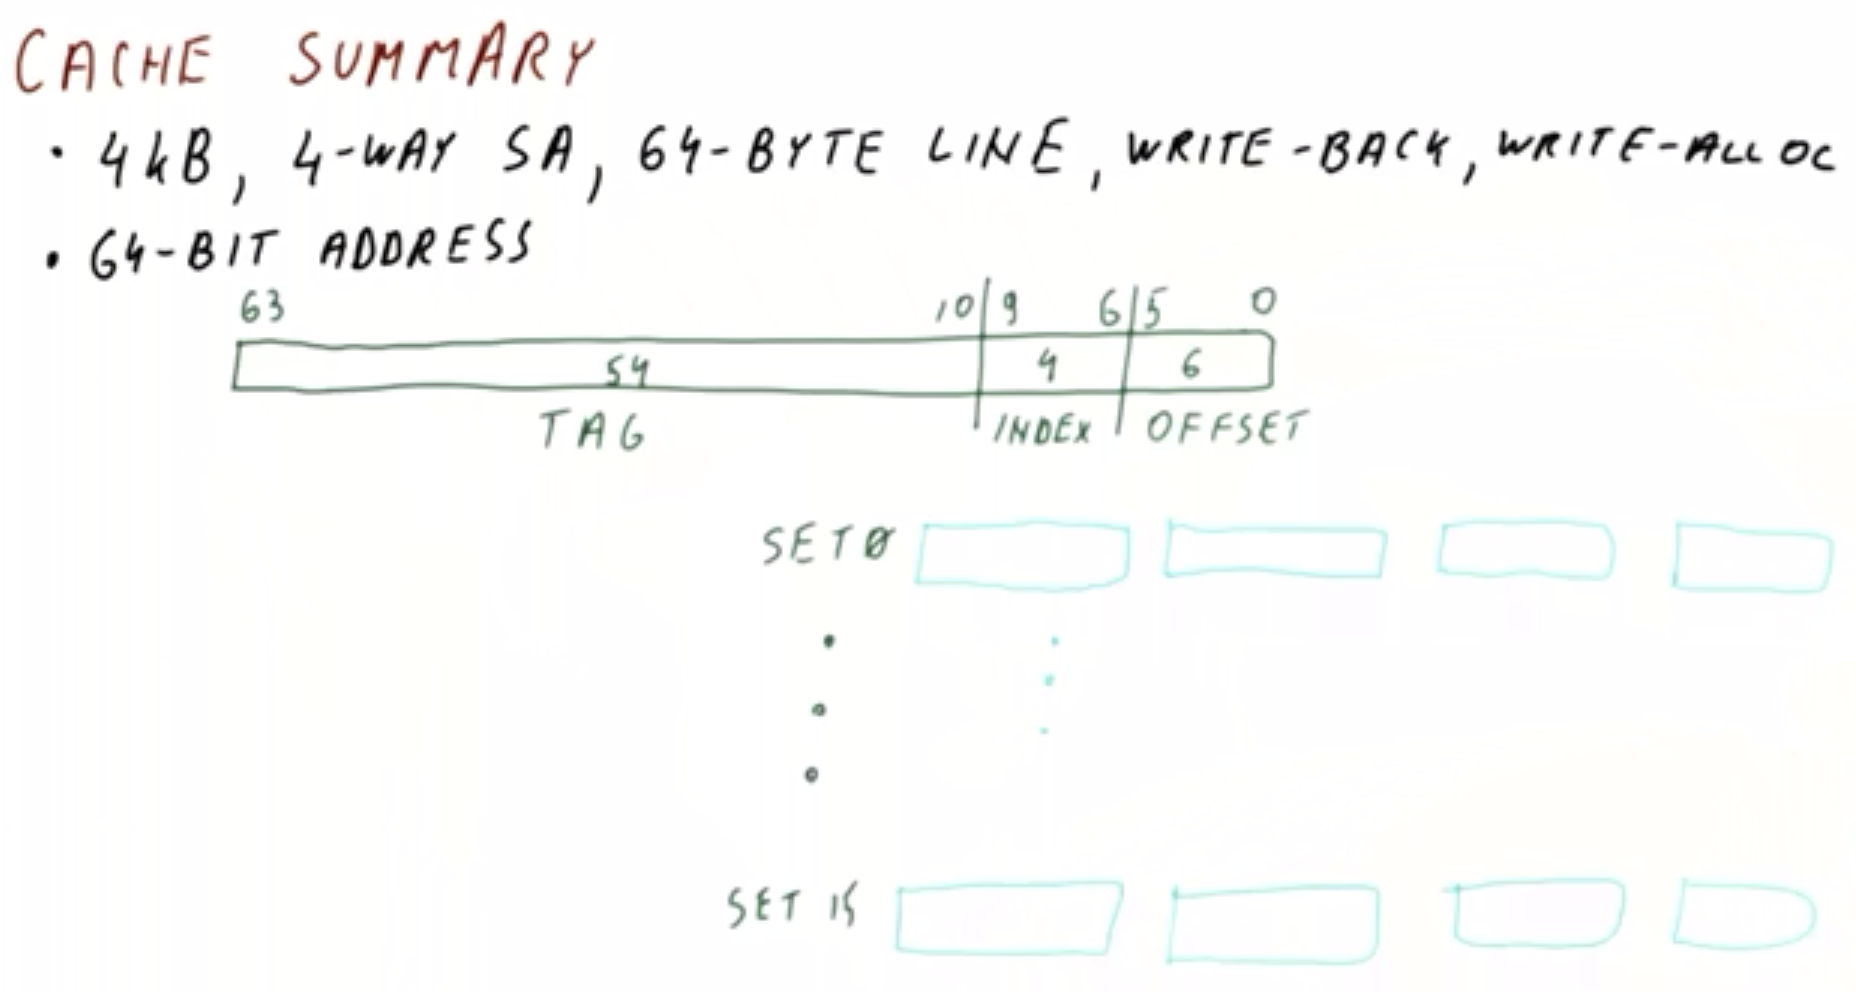 CACHE SUMMARY
• 4kB, 4-WAY SA, 64-BYTE LINE, WRITE-BACK, WRITE-ALLOC
• 64-BIT ADDRESS
63 10 9 6 5 0
54 4 6
TAG INDEX OFFSET
SET 0
SET 15